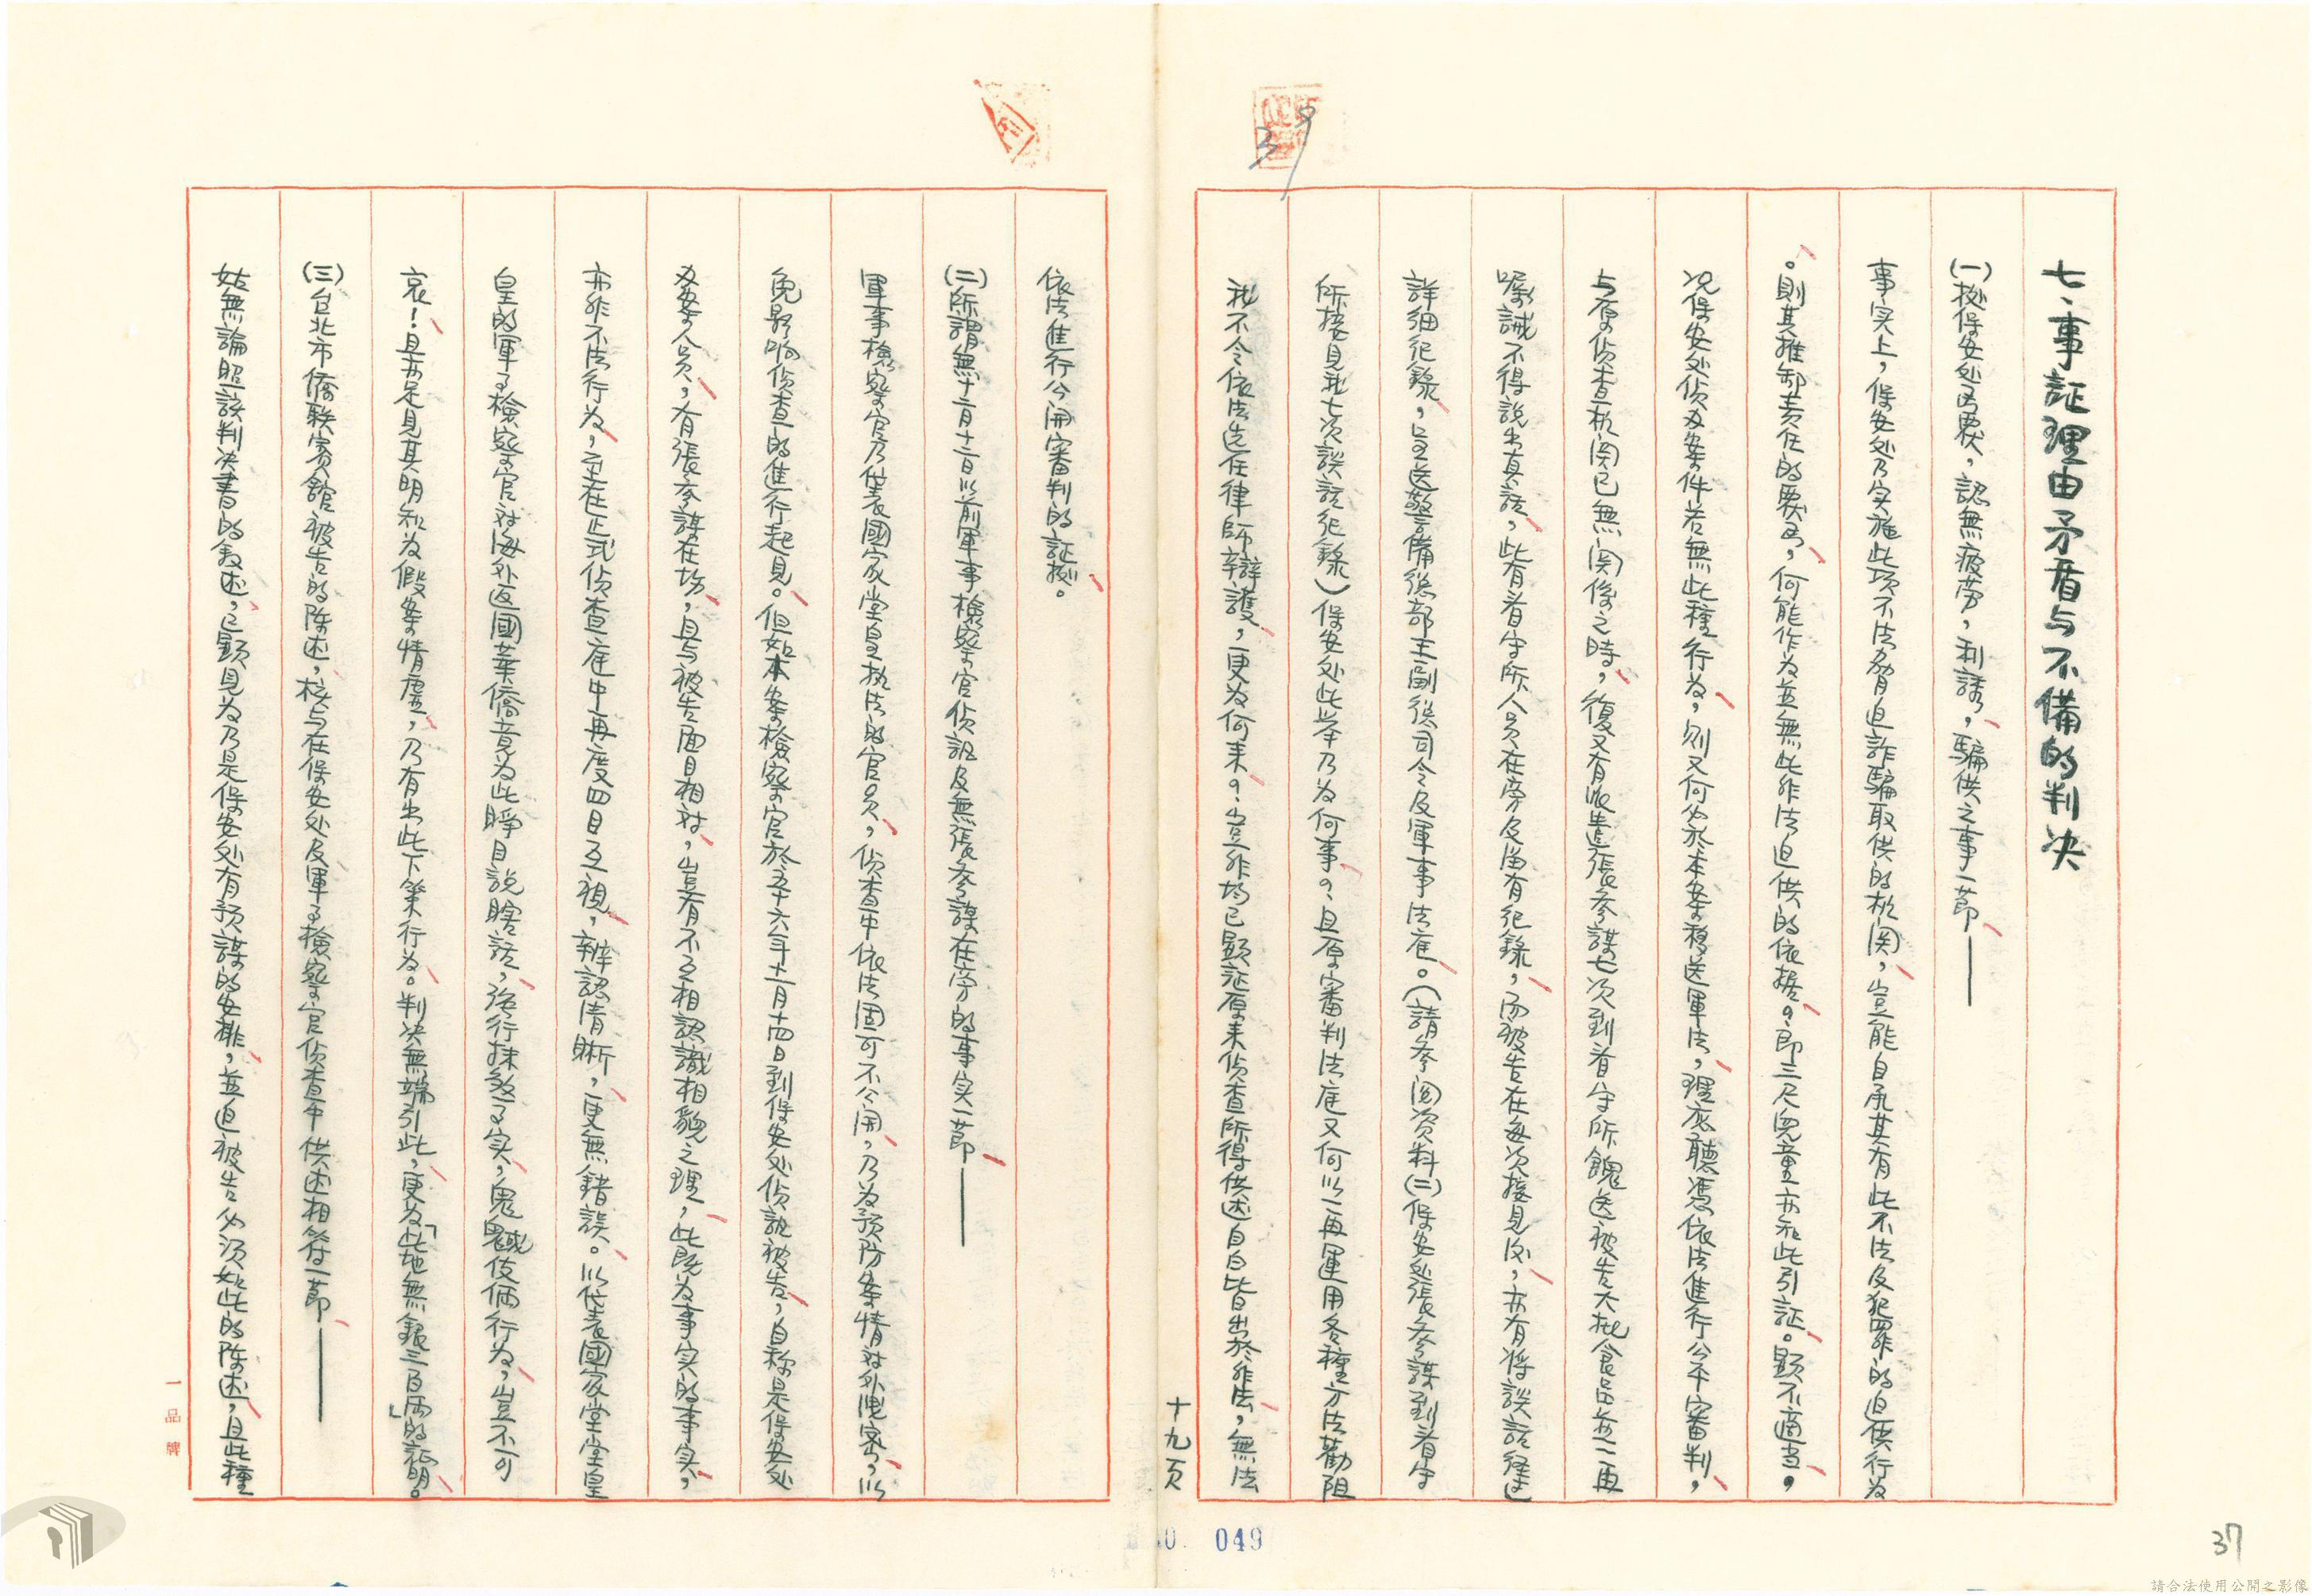 七、事証理由矛盾与不備的判决
(一)據保安处函覆,認無疲劳,利誘,騙供之事一節——
事实上,保安处乃实施此項不法脅迫詐騙取供的机関,豈能自承其有此不法及犯罪的迫供行为
。則其推卸責任的覆函,何能作为並無此非法迫供的依据?即三尺兒童亦知此引証。顕不適当。
况保安处偵办案件若無此種行为,则又何必於本案移送軍法,理应聽憑依法進行公平審判,
与原偵查机関已無関係之時,復又有派遣張參謀七次到看守所餽送被告大批食品並一再
嘱誡不得說出真話,此有看守所人员在旁及留有纪錄,而被告在每次接見后,亦有将談話経过
詳细纪錄,呈送警備総部王副総司令及軍事法庭。(請參阅资料(二)保安处張參謀到看守
所接見我七次談話纪錄)保安处此举乃为何事?且原審判法庭又何以一再運用各種方法勸阻
我不令依法选任律師辯護,更为何来?豈非均已顕证原来偵查所得供述自白皆出於非法,無法
依法進行公開審判的証據。
(二)所謂無十二月十二日以前軍事檢察官偵訊及無張參謀在旁的事实一節——
軍事檢察官乃代表國家堂皇执法的官员,偵查中依法固可不公開,乃为預防案情对外洩密,以
免影响偵查的進行起見。但如本案檢察官於五十六年十一月十四日到保安处偵訊被告,自称是保安处
办案人员,有張參謀在场,且与被告面目相对,豈有不互相認識相貌之理,此既为事实的事实,
亦非不法行为,至在正式偵查庭中再度四目互視,辨認清晰,更無錯誤。以代表國家堂堂皇
皇的軍事檢察官对海外返國華僑竟为此睜目說瞎話,强行抹煞事实,鬼魊伎俩行为,豈不可
哀!且亦足見其明知为假案情虛,乃有出此下策行为。判决無端引此,更为「此地無銀三百両」的証明。
(三)台北市僑联賓館被告的陈述,核与在保安处及軍事檢察官偵查中供述相符一節——
姑無論照該判决書的敘述,已顕見为乃是保安处有預謀的安排,並迫被告必须如此的陈述,且此種
十九頁
一品牌
049
39
37
請合法使用公開之影像